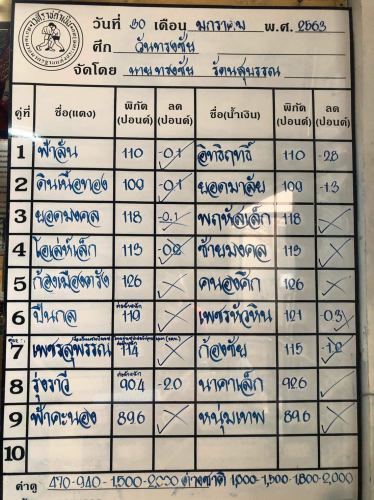 วันที่ 30 เดือน มกราคม พ.ศ. 2563
ศึก วันทรงชัย
จัดโดย นายทรงชัย รัตนสุบรรณ
คู่ที่ ชื่อ(แดง) พิกัด (ปอนด์) ลด (ปอนด์) ชื่อ(น้ำเงิน) พิกัด (ปอนด์) ลด (ปอนด์)
1 ฟ้าลั่น 110 -0.1 อิทธิฤทธิ์ 110 -2.8
2 ดินเนื้อทอง 109 -0.1 ยอดมาลัย 109 -1.3
3 ยอดมงคล 118 -0.1 พฤหัสเล็ก 118
4 โอเล่ห์เล็ก 113 -0.2 ชัยมงคล 113
5 ก้องเมืองตรัง 126 คนองศึก 126
6 ปืนกล 119 เพชรหัวหิน 121 -0.3
7 เพชรสุพรรณ 114 ก้องชัย 115 -1.2
8 รุ่งราวี 90.4 -2.0 นาคาเล็ก 92.6
9 ฟ้าคะนอง 89.6 หนุมเทพ 89.6
10
ค่าดู 470-940-1,500-2,000 ต่างชาติ 1,000-1,500-1,800-2,000